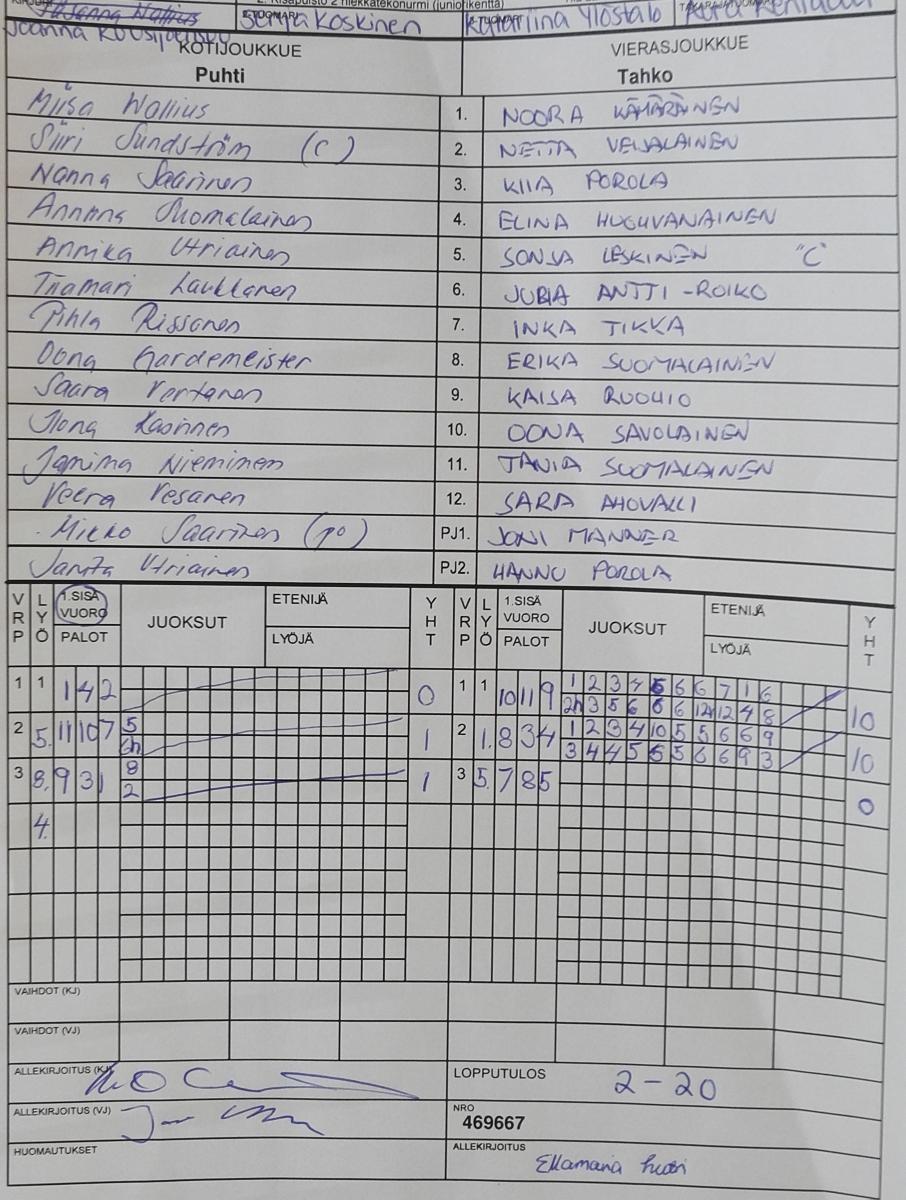 2. Risapuisto 2 hiekkatekonurmi (juniorikenttä)
Koskinen Katariina Ylöstalo
Joanna
KOTIJOUKKUE VIERASJOUKKUE
Puhti Tahko
Miisa Wallius 1. NOORA KÄHÄRÄINEN
Siiri Sundström (C) 2. NETTA VEIJALAINEN
Nanna Saarinen 3. KIIA POROLA
Suomalainen 4. ELINA
Annika Utriainen 5. SONJA LESKINEN "C"
Tiiamari Laukkanen 6. ANTTI-ROIKO
Pihla Rissanen 7. INKA TIKKA
Oona Gardemeister 8. ERIKA SUOMALAINEN
Saara Vertanen 9. KAISA RUOHIO
Ilona 10. OONA SAVOLAINEN
Jamima Nieminen 11. JANIA SUOMALAINEN
Veera Vesanen 12. SARA AHOVALLI
Mikko Saarinen (po) PJ1. JONI MANNER
Utriainen PJ2. HANNU POROLA
VRP LYÖ 1.SISÄ VUORO PALOT JUOKSUT ETENIJÄ LYÖJÄ YHT VRP LYÖ 1.SISÄ VUORO PALOT JUOKSUT ETENIJÄ LYÖJÄ YHT
1 1 1 4 2 0 1 1 10 11 9 1 2 3 4 5 6 6 7 1 6 10
2 5. 11 10 7 5 1 2 1. 8 3 4 1 2 3 4 10 5 5 6 6 9 10
3 4 4 5 5 5 6 6 9 3
3 8. 9 3 1 8 1 3 5. 7 8 5 0
2
4.
VAIHDOT (KJ)
VAIHDOT (VJ)
ALLEKIRJOITUS (KJ) LOPPUTULOS 2-20
ALLEKIRJOITUS (VJ) NRO
469667
HUOMAUTUKSET ALLEKIRJOITUS